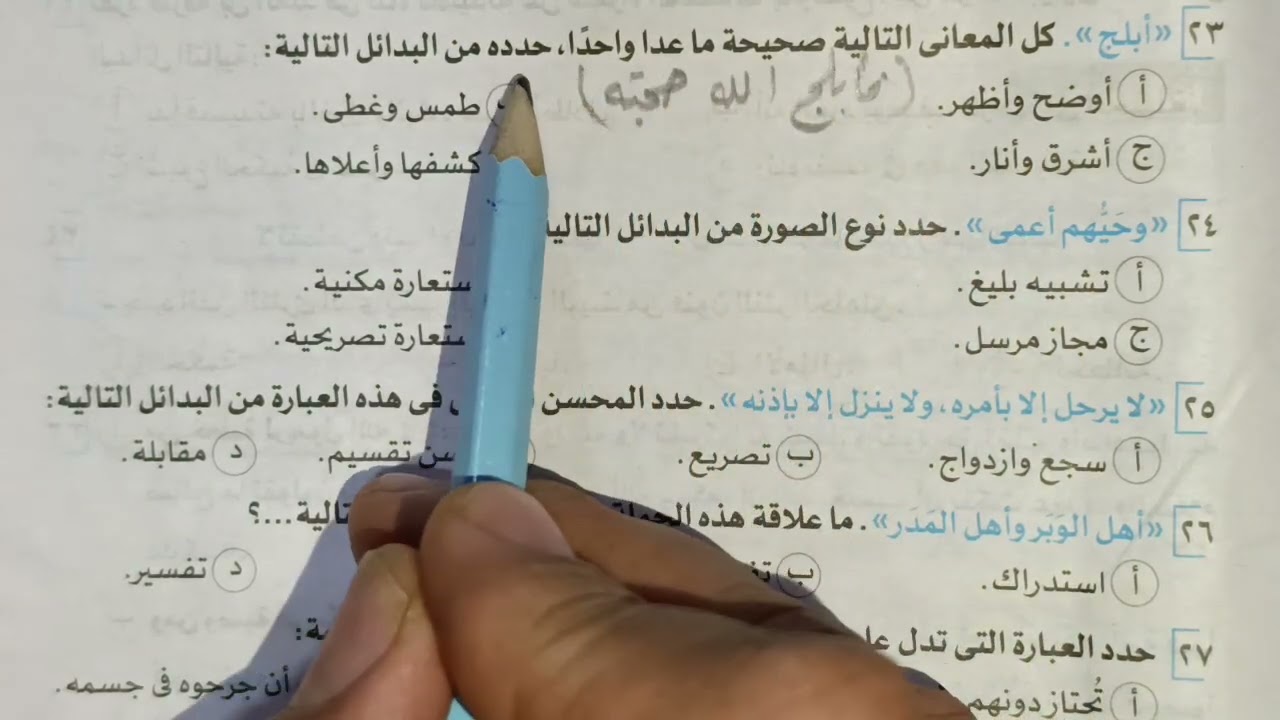 ٢٣ «أبلج». كل المعانى التالية صحيحة ما عدا واحدًا، حدده من البدائل التالية:
(فأبلج الله حجته)
أ أوضح وأظهر. طمس وغطى.
ج أشرق وأنار. كشفها وأعلاها.
٢٤ «وحَيُّهم أعمى». حدد نوع الصورة من البدائل التالية
أ تشبيه بليغ. ستعارة مكنية.
ج مجاز مرسل. ستعارة تصريحية.
٢٥ «لا يرحل إلا بأمره، ولا ينزل إلا بإذنه». حدد المحسن فى هذه العبارة من البدائل التالية:
أ سجع وازدواج. ب تصريع. تقسيم. د مقابلة.
٢٦ «أهل الوَبَر وأهل المَدَر». ما علاقة هذه تالية...؟
أ استدراك. ب د تفسير.
٢٧ حدد العبارة التى تدل
أ تُحتاز دونهم أن جرحوه فى جسمه.